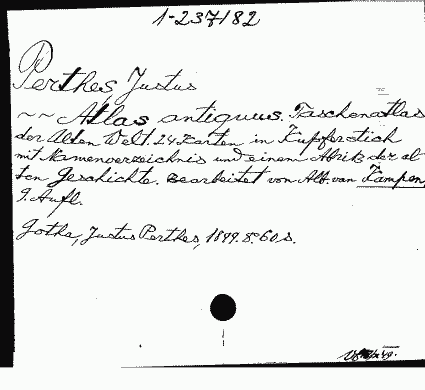 1-237182
Perthes, Justus
~~ Atlas antiquus. Taschenatlas
der Alten Welt. 24 Karten in Kupferstich
mit Namenverzeichnis und einem Abriß der al
ten Geschichte. Bearbeitet von Alb. van Kampen,
9. Aufl.
Gotha, Justus Perthes, 1899. 8° 60 s.